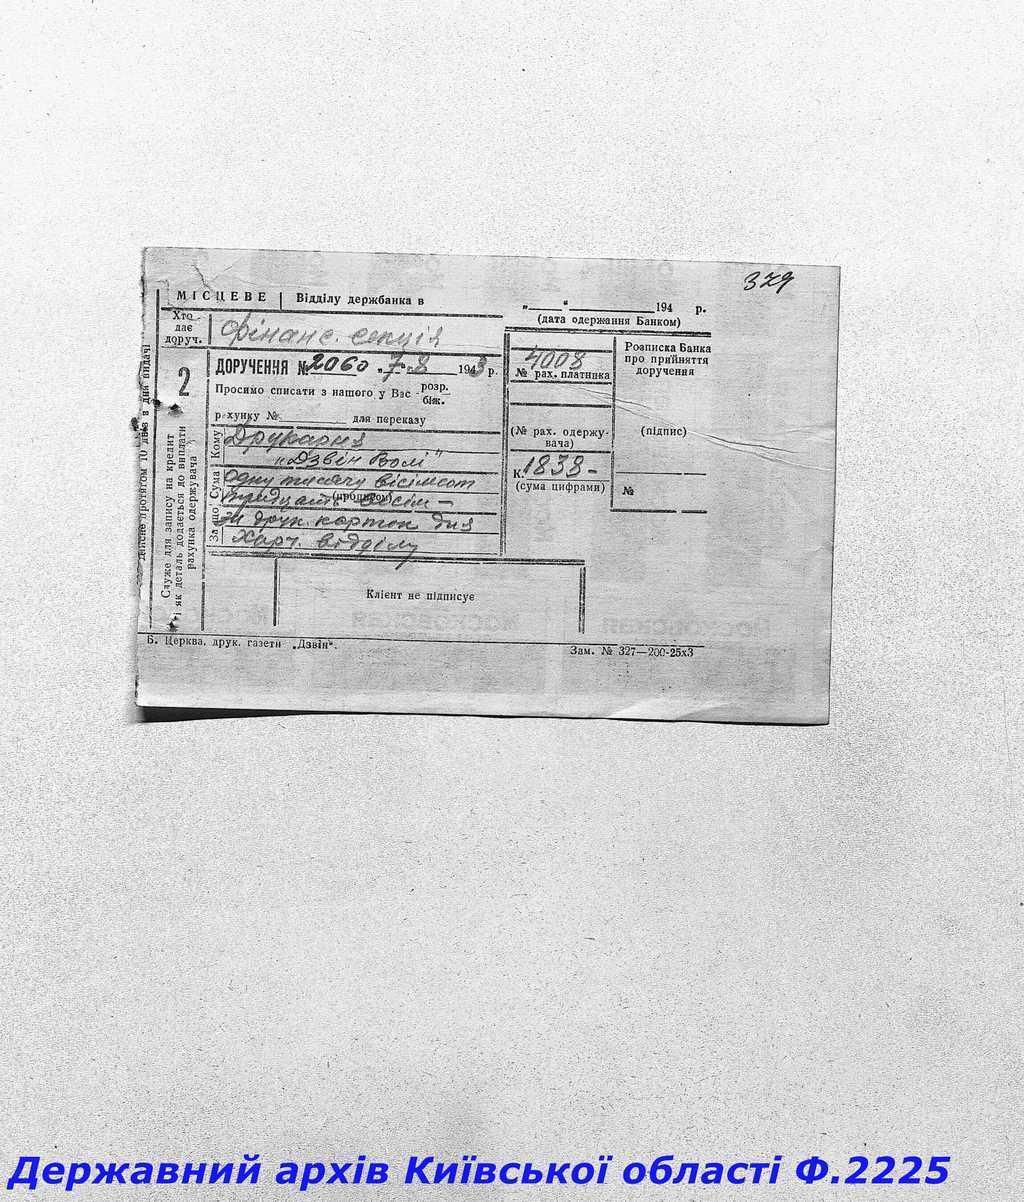 379
МІСЦЕВЕ Відділу держбанка в
„ “ 194 р.
(дата одержання Банком)
Хто дає доруч.
Фінанс. секція
ДОРУЧЕННЯ № 2060 „7„ 8 1943 р.
Просимо списати з нашого у Вас розр. біж.
рахунку № для переказу
Кому
Друкарня
„Дзвін Волі“
Сума
Одну тисячу вісімсот
(прописом)
тридцять вісім —
За що
За друк. карток для
Харч. відділу
4008
№ рах. платника
(№ рах. одержувача)
К. 1838-
(сума цифрами)
Розписка Банка
про прийняття
доручення
(підпис)
№
2
Служе для запису на кредит
і як деталь додається до виплати
рахунка одержувача
Дійсне протягом 10 днів в дня видачі
Клієнт не підписує
Б. Церква, друк. газети „Дзвін“.
Зам. № 327—200-25х3
Державний архів Київської області Ф.2225